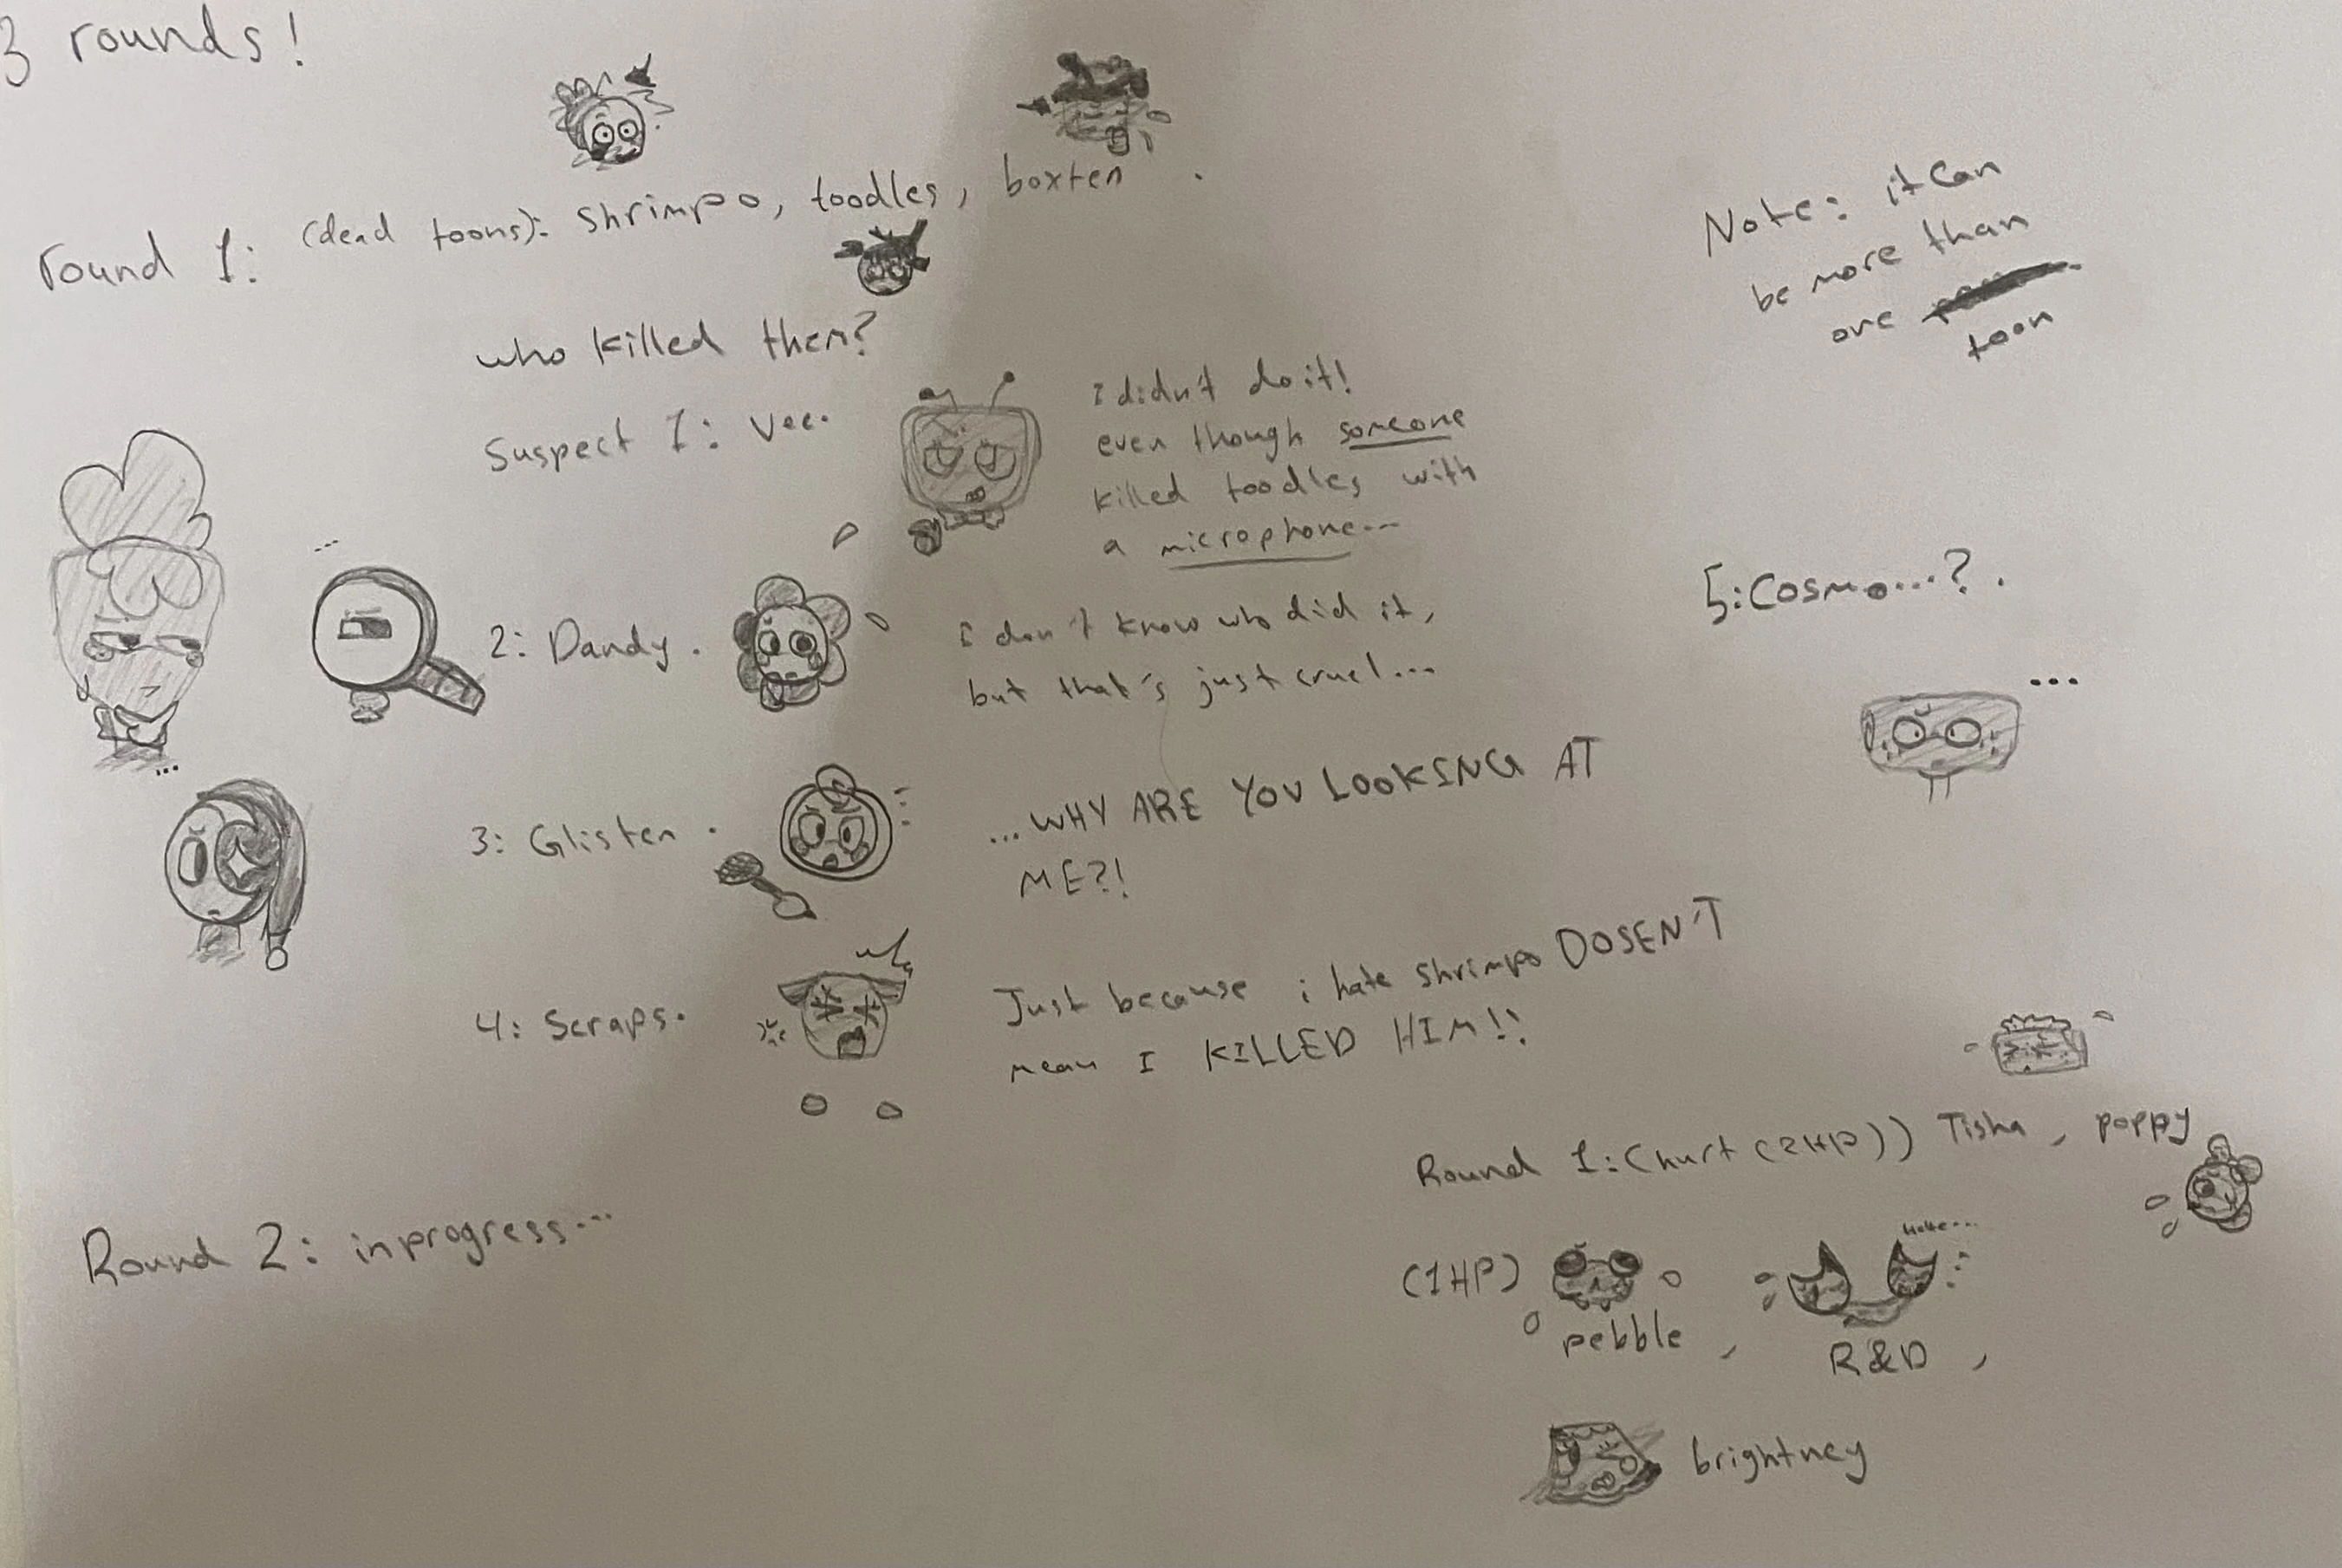 3 rounds!
round 1: (dead toons): shrimpo, toodles, boxten.
who killed them?
Note: it can
be more than
one
toon
Suspect 1: Vee.
I didn't do it!
even though someone
killed toodles with
a microphone...
...
2: Dandy.
i don't know who did it,
but that's just cruel...
5: Cosmo...?.
...
...
3: Glisten.
...WHY ARE YOU LOOKING AT
ME?!
4: Scraps.
Just because i hate shrimpo DOSEN'T
mean I KILLED HIM!!
Round 1: (hurt (2HP)) Tisha, poppy
Round 2: in progress...
(1HP)
pebble,
R&D,
brightney